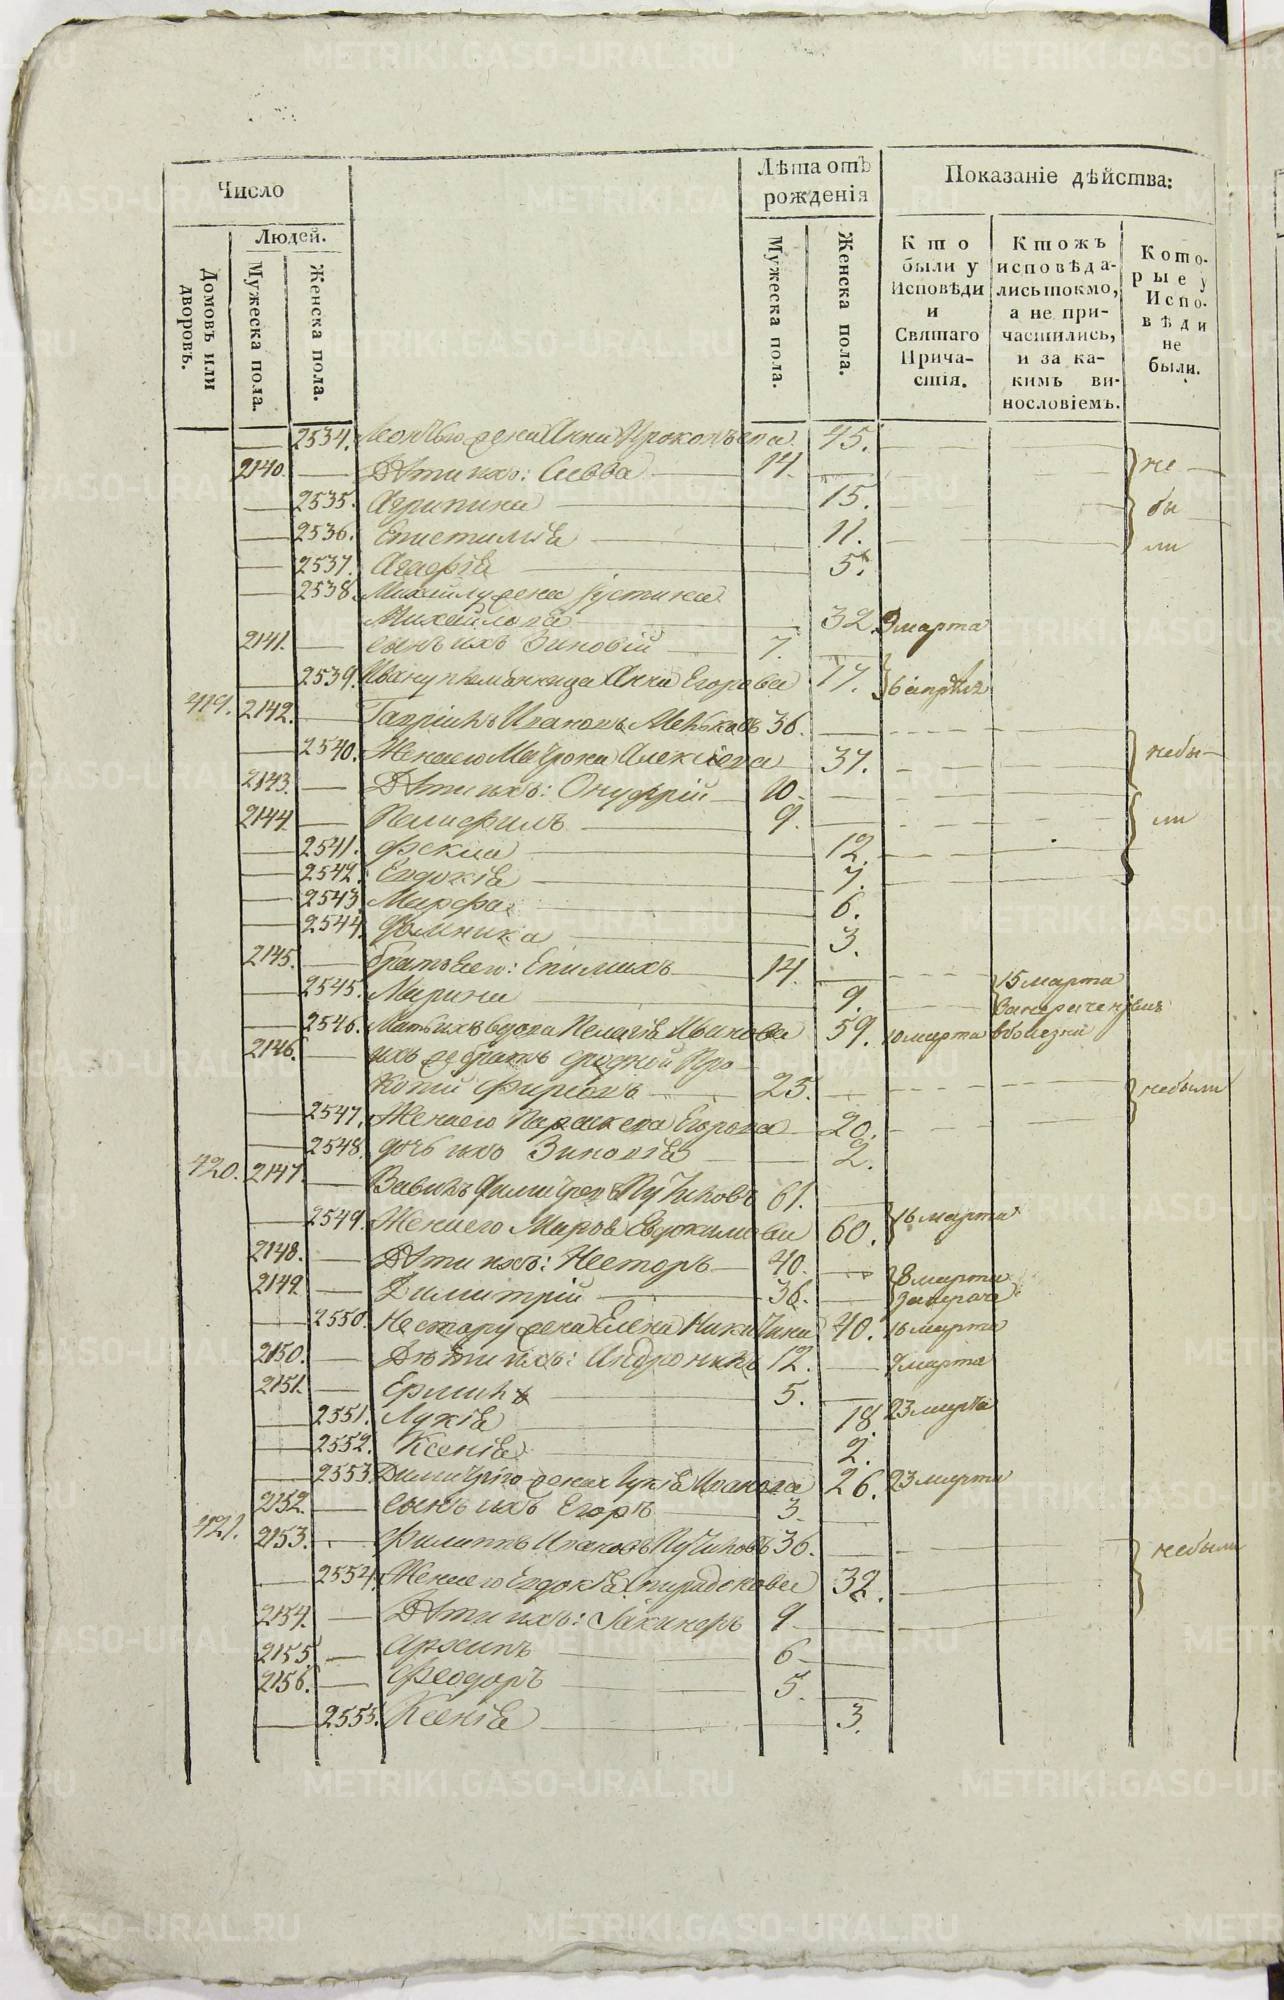 Число
Людей.
Домовъ или дворовъ.
Мужеска пола.
Женска пола.
Лѣта отъ рожденія
Мужеска пола.
Женска пола.
Показаніе дѣйства:
Кто были у Исповѣди и Святаго Причастія.
Ктожъ исповѣдались токмо, а не причастились, и за какимъ винословіемъ.
Которые у Исповѣди не были.
2534. жена Анна Прокопьева 45.
2140. Дѣти ихъ: Савва 14. не
2535. Агрипина 15. бы
2536. Епистимія 11. ли
2537. Агафія 5.
2538. Михайлу жена Устина
Михайлова 32. 9 марта
2141. сынъ ихъ Зиновій 7.
2539. Ивану племянница Анна Егорова 17. 6 апрѣля
419. 2142. Гаврилъ Ивановъ 36.
2540. Жена его Матрона Алексіева 37. небы
2143. Дѣти ихъ: Онуфрій 10.
2144. Памфилъ 9. ли
2541. Фекла 12.
2542. Евдокія 7.
2543 Марфа 6.
2544. Домника 3.
2145. братъ его: Епимахъ 14.
2545. Марина 9. 15 марта
2546. Мать ихъ вдова Пелагія Иванова 59. 10 марта в болезни
2146. ихъ же братъ сродной Про-
копій Фирсовъ 25. небыли
2547. Жена его Параскева Егорова 20.
2548. дочь ихъ Зиновія 2.
420. 2147. Вавилъ Димитріев Путиловъ 61.
2549. Жена его Мавра Евдокимова 60. 16 марта
2148. Дѣти ихъ: Несторъ 40. 8 марта
2149 Димитрій 36.
2550. Нестору жена Елена Никитина 40. 16 марта
2150. Дѣти ихъ: Андроникъ 12. 9 марта
2151. Ермилъ 5.
2551. Лукія 18 23 марта
2552. Ксенія 2.
2553. Димитрію жена Лукія Иванова 26. 23 марта
2152. сынъ ихъ Егоръ 3.
421. 2153. Филиппъ Ивановъ Путиловъ 36. небыли
2554. Жена его Евдокія Спиридонова 32.
2154. Дѣти ихъ: Іакинфъ 9
2155 Архипъ 6
2156. Феодоръ 5.
2555. Ксенія 3.
METRIKI.GASO-URAL.RU